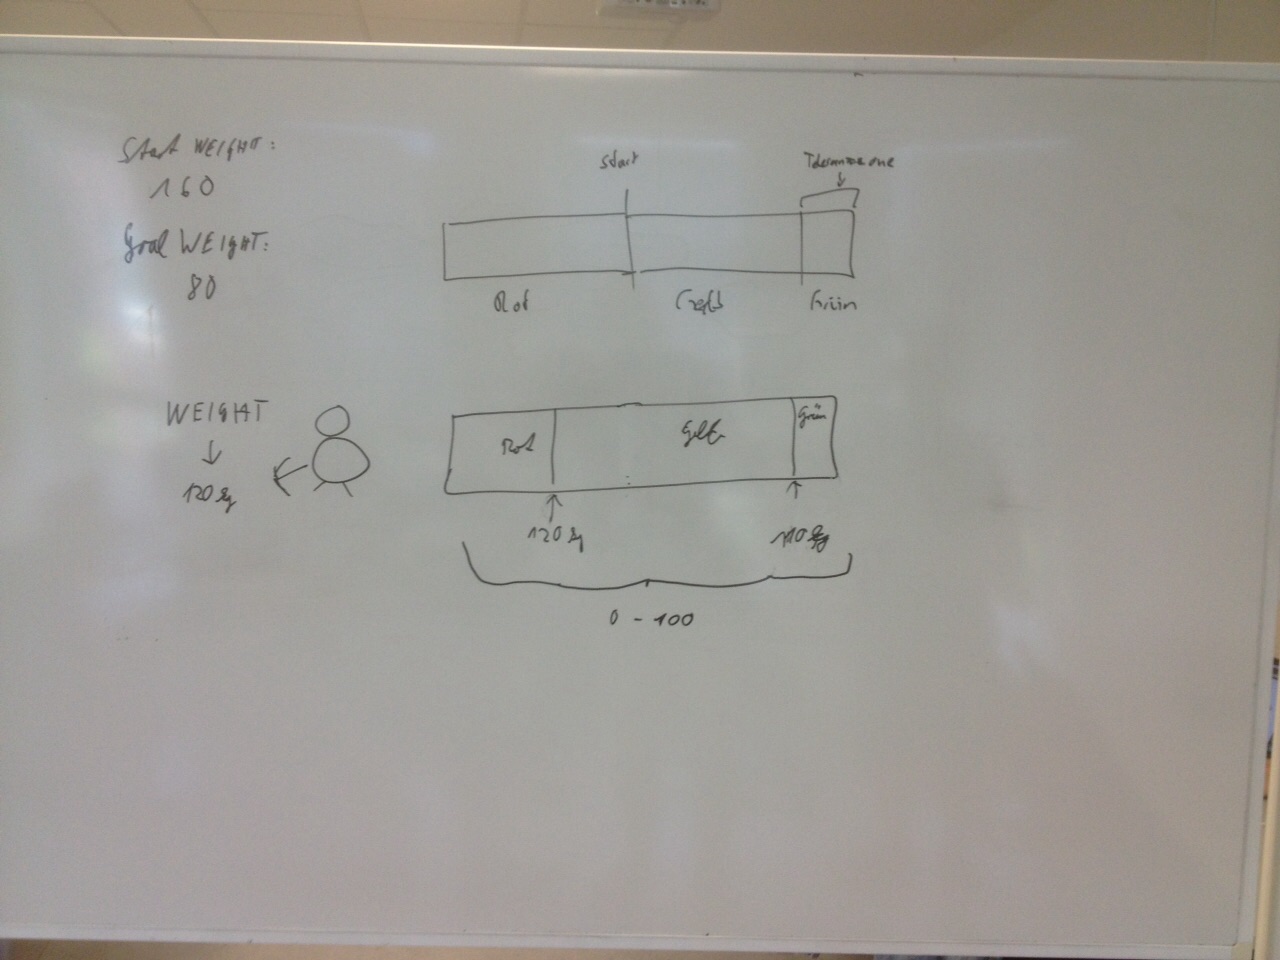 Start WEIGHT:
160
Goal WEIGHT:
80
Start
Toleranzzone
Rot
Gelb
Grün
WEIGHT
120 kg
Rot
Gelb
Grün
120 kg
0 - 100